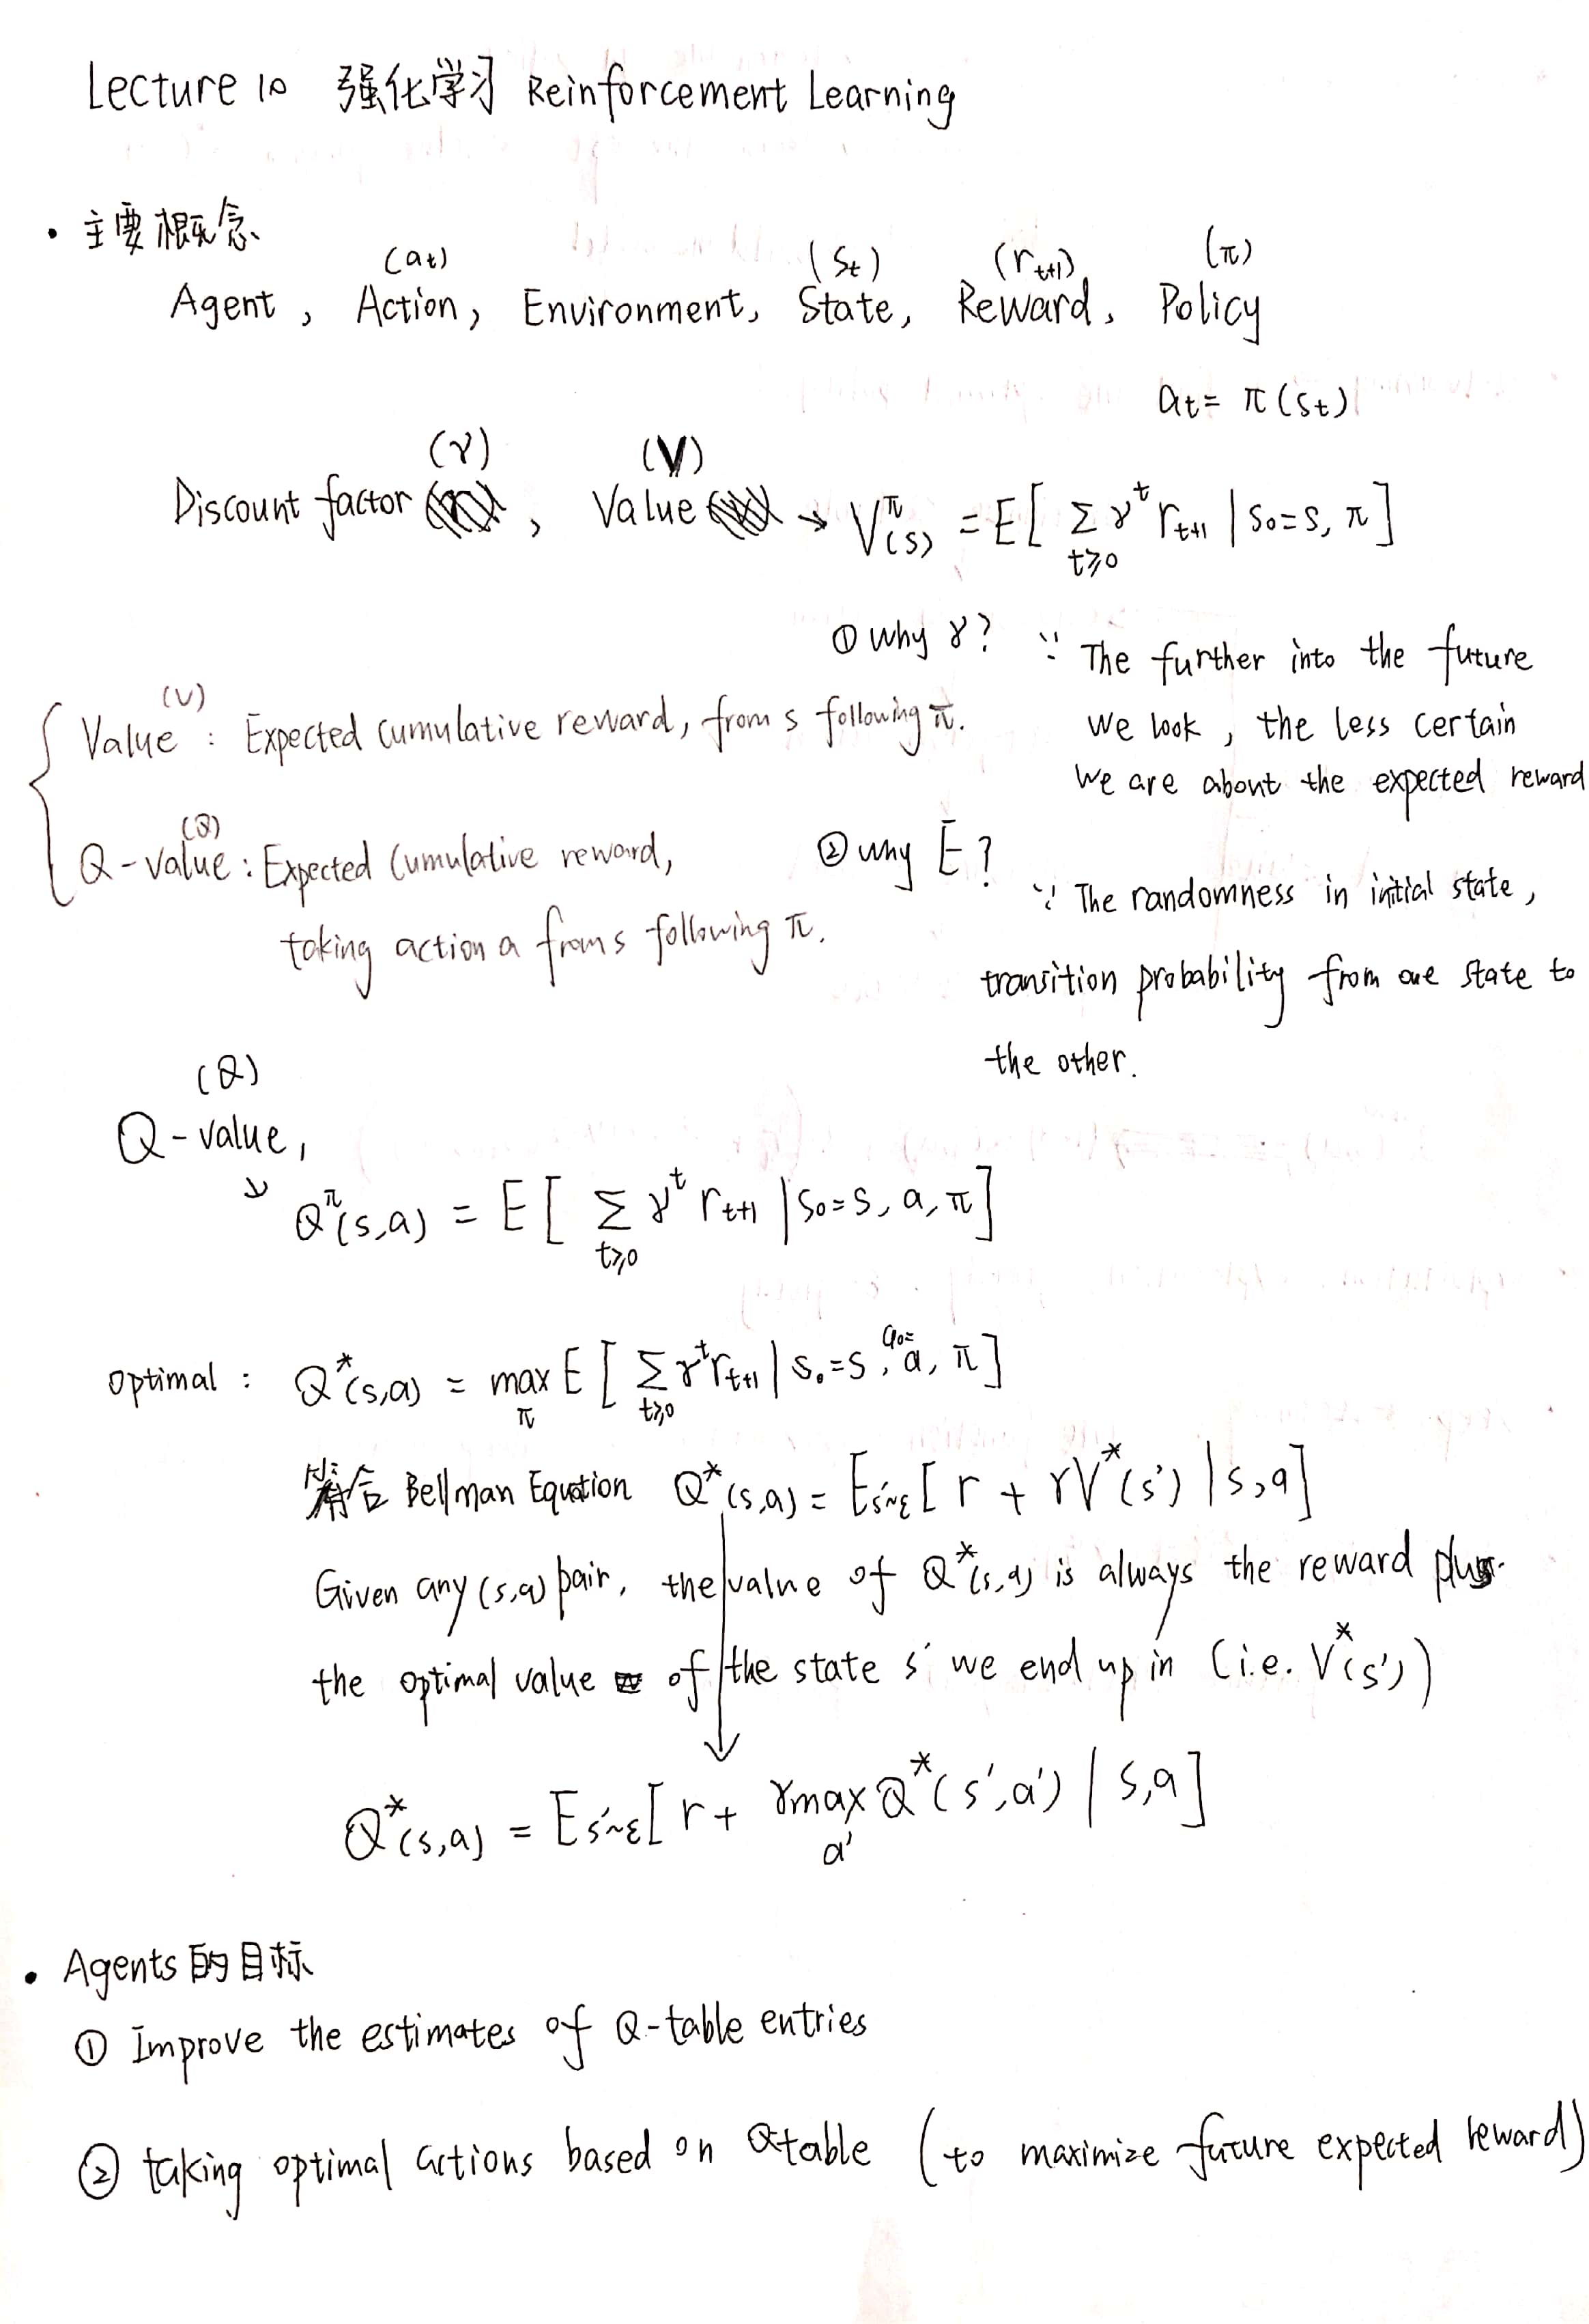 Lecture 10 强化学习 Reinforcement Learning
· 主要概念
(at) (St) (rt+1) (π)
Agent, Action, Environment, State, Reward, Policy
at = π(st)
(γ) (V)
Discount factor, Value → V^π(s) = E[ Σ_{t≥0} γ^t r_{t+1} | s0=s, π ]
① why γ? ∵ The further into the future
we look, the less certain
we are about the expected reward
(V)
Value : Expected cumulative reward, from s following π.
(Q)
Q-value : Expected cumulative reward,
taking action a from s following π.
② why E?
∵ The randomness in initial state,
transition probability from one state to
the other.
(Q)
Q-value,
↓ Q^π(s,a) = E[ Σ_{t≥0} γ^t r_{t+1} | s0=s, a, π ]
optimal : Q*(s,a) = max_π E[ Σ_{t≥0} γ^t r_{t+1} | s0=s, a0=a, π ]
符合 Bellman Equation Q*(s,a) = E_{s'~ε}[ r + γV*(s') | s,a ]
Given any (s,a) pair, the value of Q*(s,a) is always the reward plus
the optimal value of the state s' we end up in (i.e. V*(s'))
Q*(s,a) = E_{s'~ε}[ r + γ max_{a'} Q*(s',a') | s,a ]
· Agents的目标
① Improve the estimates of Q-table entries
② taking optimal actions based on Qtable (to maximize future expected reward)